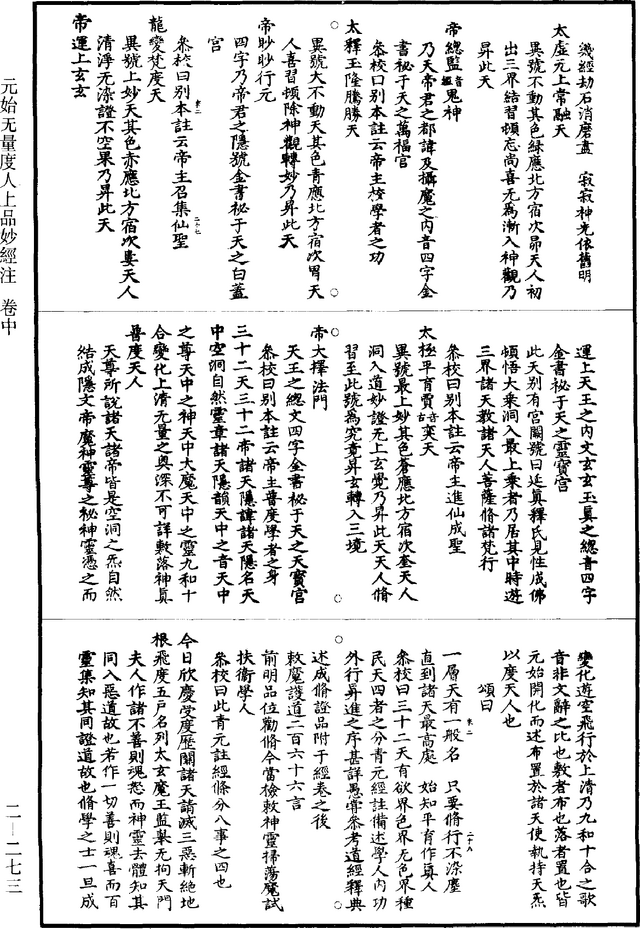 元始无量度人上品妙經注 卷中
二—二七三
幾經劫石消磨盡 寂寂神光依舊明
太虛元上常融天
異號不動其色綠應北方宿次昴天人初
出三界結習頓忘尚喜无為漸入神觀乃
昇此天
帝總監音鑑鬼神
乃天帝君之都諱及攝魔之內音四字金
書祕于天之萬福宮
叅校曰别本註云帝主校學者之功
太釋玉隆騰勝天
異號大不動天其色青應北方宿次胃天
人喜習頓除神觀轉妙乃昇此天
帝眇眇行元
四字乃帝君之隱號金書祕于天之白蓋
宮
叅校曰别本註云帝主召集仙聖
龍變梵度天
異號上妙天其色赤應北方宿次婁天人
清淨无染證不空果乃昇此天
帝運上玄玄
運上天王之內文玄玄玉眞之總音四字
金書祕于天之靈寶宮
此天别有宮闕號曰延眞釋氏見性成佛
頓悟大乘洞入最上乘者乃居其中時遊
三界諸天教諸天人菩薩脩諸梵行
叅校曰别本註云帝主進仙成聖
太極平育賈音古奕天
異號最上妙其色蒼應北方宿次奎天人
洞入道妙證无上玄覺乃昇此天天人脩
習至此號為究竟昇玄轉入三境
帝大擇法門
天王之總文四字金書祕于天之天寶宮
叅校曰别本註云帝主普度學者之身
三十二天三十二帝諸天隱諱諸天隱名天
中空洞自然靈章諸天隱韻天中之音天中
之尊天中之神天中大魔天中之靈九和十
合變化上清无量之奥深不可詳敷落神眞
普度天人
天尊所說諸天諸帝皆是空洞之炁自然
結成隱文帝魔神靈尊之秘神靈憑之而
變化遊空飛行於上清乃九和十合之歌
音非文辭之比也敷者布也落者置也皆
元始開化而述布置於諸天使執持天炁
以度天人也
頌曰
一層天有一般名 只要脩行不染塵
直到諸天最高處 始知平育作眞人
叅校曰三十二天有欲界色界无色界種
民天四者之分青元經註備述學人內功
外行昇進之序甚詳愚常叅考道經釋典
述成脩證品附于經卷之後
前明品位勸脩今當檢敕神靈掃蕩魔試
敕魔護道二百六十六言
扶衞學人
叅校曰此青元註經條分八事之四也
今日欣慶受度歷關諸天請滅三惡斬絶地
根飛度五戶名列太玄魔王監舉无拘天門
夫人作諸不善則魂怨而神靈去體知其
同入惡道故也若作一切善則魂喜而百
靈集知其同證道故也脩學之士一旦成